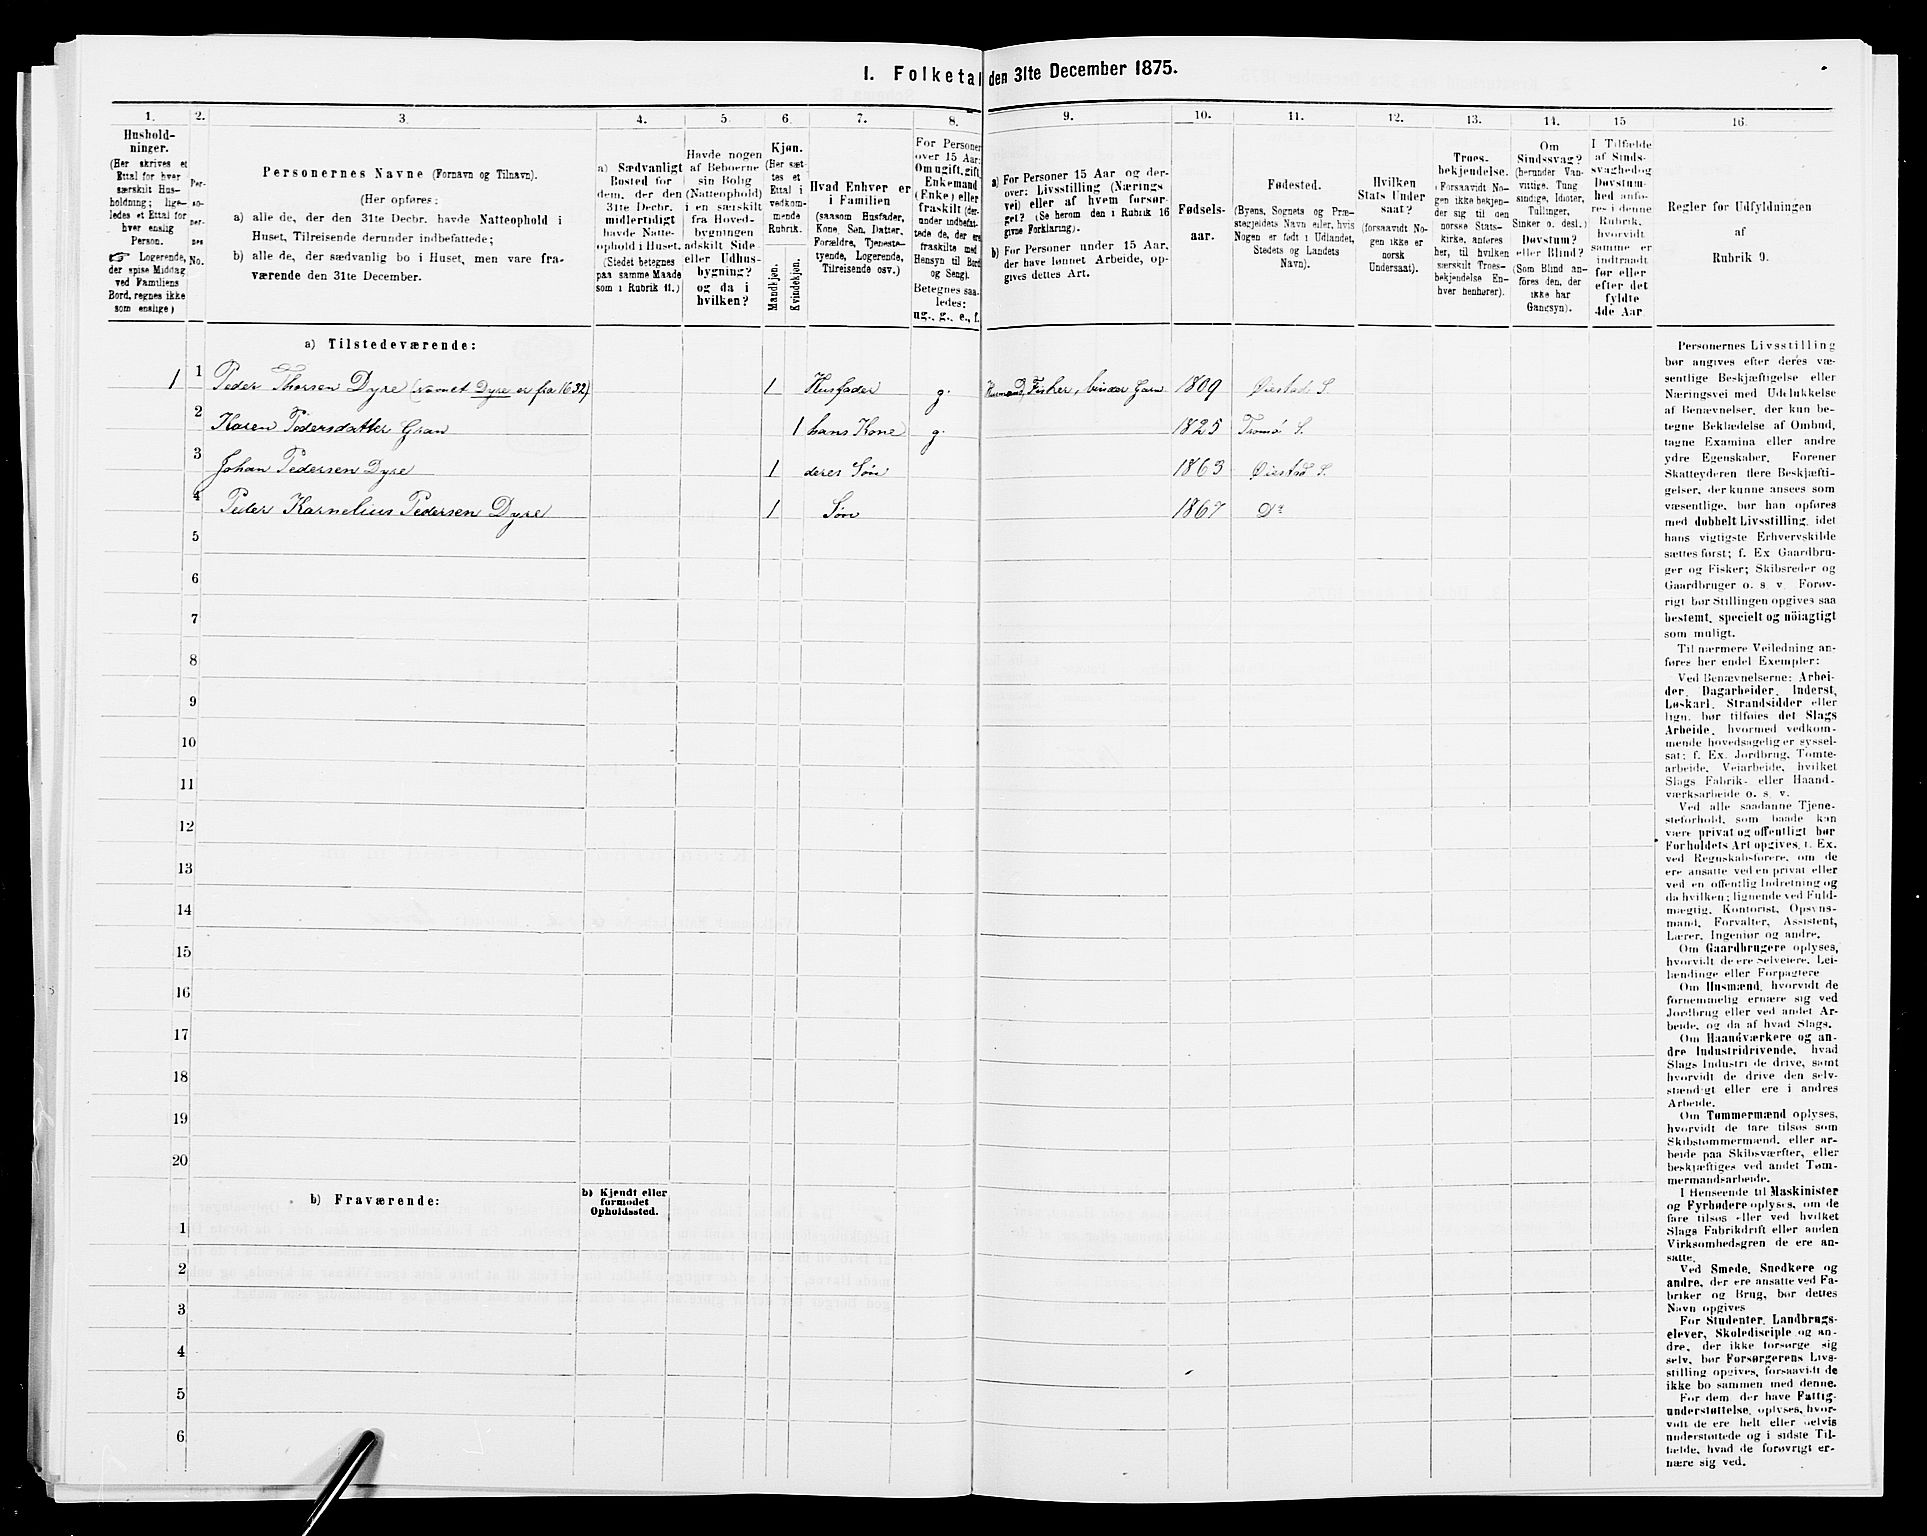 I. Folketal den 31te December 1875.
1.
Hushold-
ninger.
(Her skrives et
Ettal for hver
særskilt Hus-
holdning; lige-
ledes et Ettal for
hver enslig
Person.
☞ Logerende,
der spise Middag
ved Familiens
Bord, regnes ikke
som enslige)
2.
Per-
so-
ner-
nes
No.
3.
Personernes Navne (Fornavn og Tilnavn).
(Her opføres:
a) alle de, der den 31te Decbr. havde Natteophold i
Huset, Tilreisende derunder indbefattede;
b) alle de, der sædvanlig bo i Huset, men vare fra-
værende den 31te December.
4.
a) Sædvanligt
Bosted for
dem, der den
31te Decbr.
midlertidigt
havde Natte-
ophold i Huset.
(Stedet betegnes
paa samme Maade
som i Rubrik 11.)
5.
Havde nogen
af Beboerne
sin Bolig
(Natteophold)
i en særskilt
fra Hoved-
bygningen
adskilt Side-
eller Udhus-
bygning?
og da i
hvilken?
6.
Kjøn.
(Her sæt-
tes et
Ettal i
vedkom-
mende
Rubrik.
Mandkjøn.
Kvindekjøn.
7.
Hvad Enhver er
i Familien
(saasom Husfader,
Kone, Søn, Datter,
Forældre, Tjeneste-
tyende, Logerende,
Tilreisende osv.)
8.
For Personer
over 15 Aar:
Om ugift, gift,
Enkemand
(Enke) eller
fraskilt (der-
under indbefat-
tede de, der ere
fraskilte med
Hensyn til Bord
og Seng).
Betegnes saa-
ledes:
ug., g., e., f.
9.
a) For Personer 15 Aar og der-
over: Livsstilling (Nærings-
vei) eller af hvem forsør-
get? (Se herom den i Rubrik 16
givne Forklaring).
b) For Personer under 15 Aar,
der have lønnet Arbeide, op-
gives dettes Art.
10.
Fødsels-
aar.
11.
Fødested.
(Byens, Sognets og Præ-
stegjeldets Navn eller, hvis
Nogen er født i Udlandet,
Stedets og Landets
Navn).
12.
Hvilken
Stats Under
saat?
(forsaavidt No-
gen ikke er
norsk
Undersaat).
13.
Troes-
bekjendelse.
(Forsaavidt No-
gen ikke bekjen-
der sig til den
norske Stats-
kirke, anføres
her, til hvilken
særskilt Troes-
bekjendelse En-
hver henhører).
14.
Om
Sindssvag?
(herunder Van-
vittige, Tung
sindige, Idioter,
Tullinger,
Sinker o. desl.)
Døvstum?
eller Blind?
(Som Blind an-
føres den, der
ikke har
Gangsyn).
15
I Tilfælde
af Sinds-
svaghed og
Døvstum-
hed anfø-
res i denne
Rubrik,
hvorvidt
samme er
indtraadt
før eller
efter det
fyldte
4de Aar.
16.
Regler for Udfyldningen
af
Rubrik 9.
a) Tilstedeværende:
1 1 Peder Thorsen Dyre (Navnet Dyre er fra 1632) 1 Husfader g. Husmand, Fisker, binder Garn 1809 Øiestad S.
2 Karen Pedersdatter Gran 1 hans Kone g. 1825 Tromø S.
3 Johan Pedersen Dyre 1 deres Søn 1863 Øiestad S.
4 Peder Karnelius Pedersen Dyre 1 Søn 1867 Do
5
6
7
8
9
10
11
12
13
14
15
16
17
18
19
20
b) Fraværende:
b) Kjendt eller
formodet
Opholdssted.
1
2
3
4
5
6
Personernes Livsstilling
bør angives efter deres væ-
sentlige Beskjæftigelse eller
Næringsvei med Udelukkelse
af Benævnelser, der kun be-
tegne Beklædelse af Ombud,
tagne Examina eller andre
ydre Egenskaber. Forener
Skatteyderen flere Beskjæfti-
gelser, der kunne ansees som
væsentlige, bør han opføres
med dobbelt Livsstilling, idet
hans vigtigste Erhvervskilde
sættes først; f. Ex Gaardbru-
ger og Fisker; Skibsreder og
Gaardbruger o. s. v. Forøv-
rigt bør Stillingen opgives saa
bestemt, specielt og nöiagtigt
som muligt.
Til nærmere Veiledning an-
føres her endel Exempler:
Ved Benævnelserne: Arbei-
der, Dagarbeider, Inderst,
Løskarl, Strandsidder eller
lign. bør tilføies det Slags
Arbeide, hvormed vedkom-
mende hovedsagelig er syssel-
sat; f. Ex. Jordbrug, Tomte-
arbeide, Veiarbeide, hvilket
Slags Fabrik- eller Haand-
værksarbeide o. s. v.
Ved alle saadanne Tjene-
steforhold, som baade kan
være privat og offentligt bør
Forholdets Art opgives, f. Ex.
ved Regnskabsførere, om de
ere ansatte ved en privat eller
ved en offentlig Indretning og
da hvilken; lignende ved Fuld-
mægtig, Kontorist, Opsyns-
mand, Forvalter, Assistent,
Lærer, Ingeniør og andre.
Om Gaardbrugere oplyses,
hvorvidt de ere Selveiere, Lei-
lændinge eller Forpagtere
Om Husmænd, hvorvidt de
fornemmelig ernære sig ved
Jordbrug eller ved andet Ar-
beide, og da af hvad Slags.
Om Haandværkere og an-
dre Industridrivende, hvad
Slags Industri de drive, samt
hvorvidt de drive den selv-
stændigt eller ere i andres
Arbeide.
Om Tømmermænd oplyses,
hvorvidt de fare tilsøs som
Skibstømmermænd, eller ar-
beide paa Skibsværfter, eller
beskjæftiges ved andet Tøm-
mermandsarbeide.
I Henseende til Maskinister
og Fyrbødere oplyses, om de
fare tilsøs eller ved hvilket
Slags Fabrikdrift eller anden
Virksomhedsgren de ere an-
satte.
Ved Smede, Snedkere og
andre, der ere ansatte ved Fa-
briker og Brug, bør dettes
Navn opgives
For Studenter, Landbrugs-
elever, Skoledisciple og an-
dre, der ikke forsørge sig
selv, bør Forsørgerens Livs-
stilling opgives, forsaavidt de
ikke bo sammen med denne.
For dem, der have Fattig-
understøttelse, oplyses, hvor-
vidt de ere helt eller delvis
understøttede og i sidste Til-
fælde, hvad de forøvrigt er-
nære sig ved.